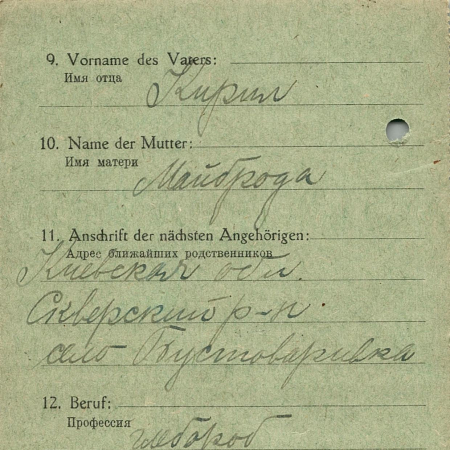 9. Vorname des Vaters:
Имя отца
Кирил
10. Name der Mutter:
Имя матери
Майброда
11. Anschrift der nächsten Angehörigen:
Адрес ближайших родственников
Киевская обл.
Скверский р-н
село Пустоваривка
12. Beruf:
Профессия
хлебороб